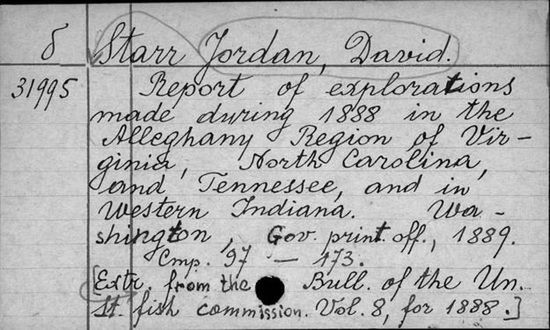 δ Starr Jordan, David.
31995 Report of explorations
made during 1888 in the
Alleghany Region of Vir-
ginia, North Carolina,
and Tennessee, and in
Western Indiana. Wa-
shington, Gov. print. off., 1889.
Cmp. 97 — 173.
[Extr. from the Bull. of the Un.
St. fish commission. Vol. 8, for 1888.]